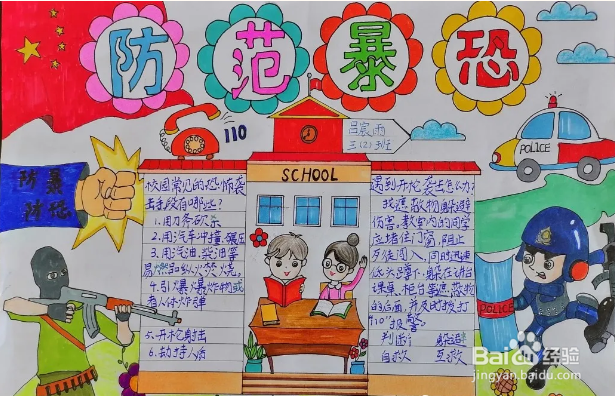 防范暴恐
110
吕宸雨
三(2)班
SCHOOL
POLICE
防暴
防恐
校园常见的恐怖袭
击手段有哪些？
1.用刀条砍杀
2.用汽车冲撞、碾压
3.用汽油、柴油等
易燃品纵火焚烧。
4.引爆爆炸物或
者人体炸弹
5.开枪射击
6.劫持人质
遇到开枪袭击怎么办？
找遮蔽物躲避
伤害，教室内的同学
应堵住门窗，阻止
歹徒闯入，同时迅速
低头蹲下，躲在讲台
课桌、柜台等遮蔽物
的后面，并及时拨打
"110"报警。
判断 躲避
自救 互救
POLICE
Baidu经验
jingyan.baidu.com